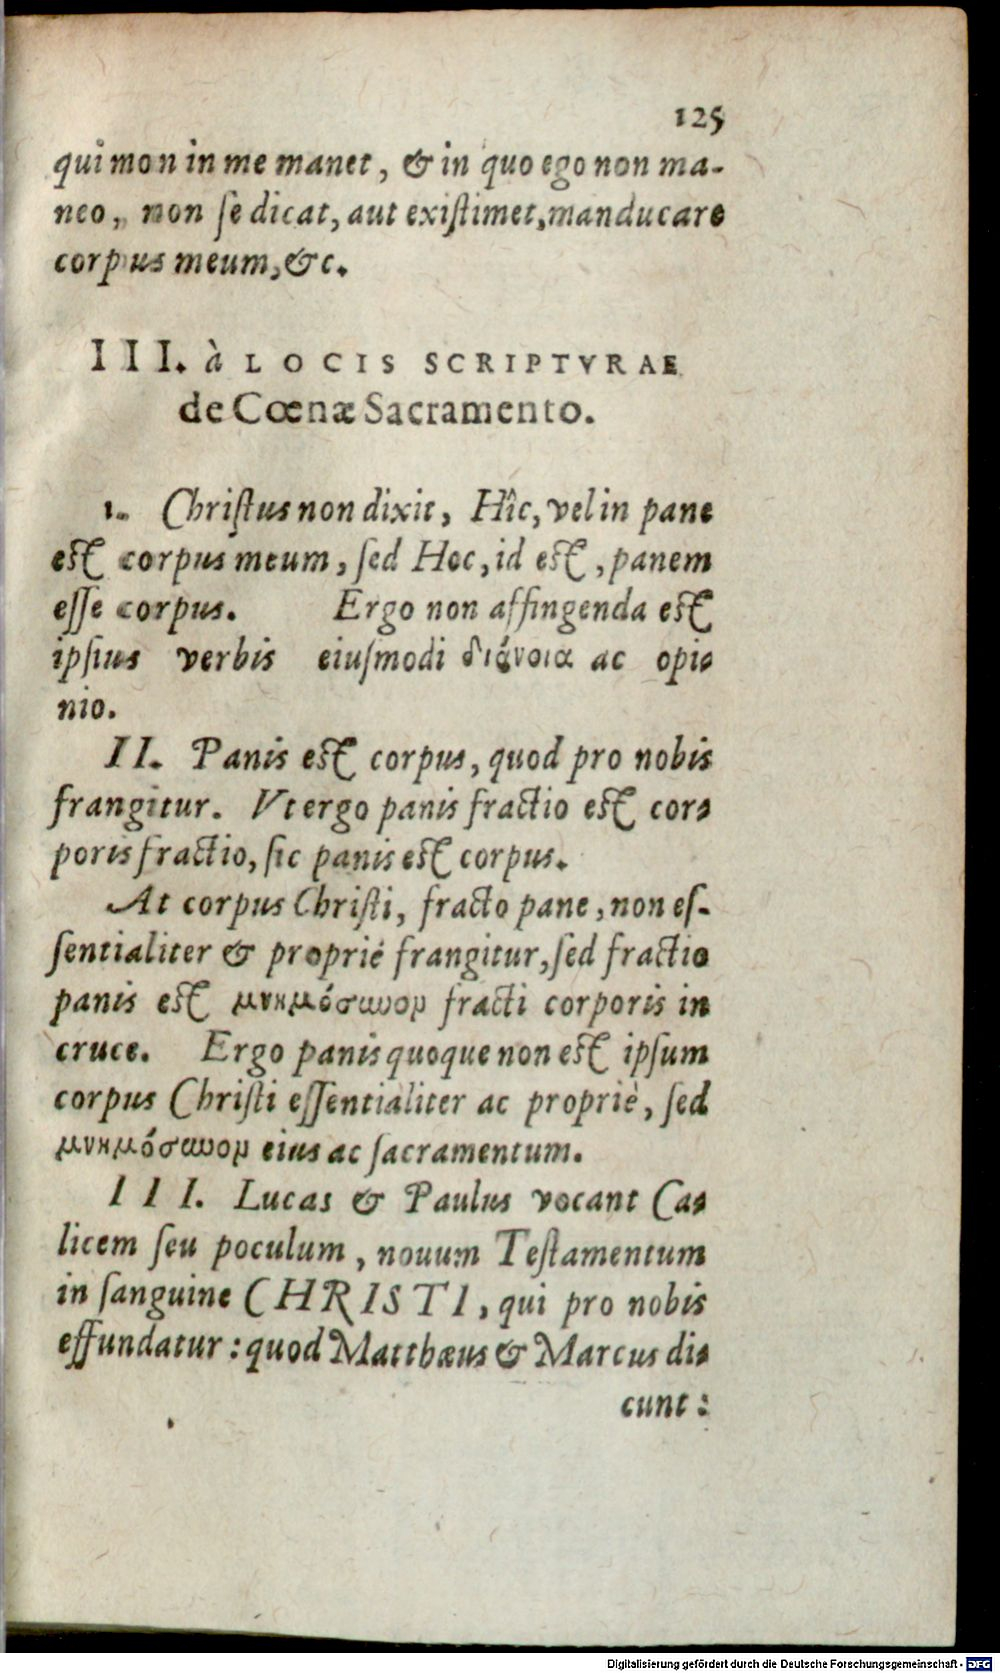 125
qui mon in me manet, & in quo ego non ma-
neo, non se dicat, aut existimet, manducare
corpus meum, &c.
III. à LOCIS SCRIPTVRAE
de Cœnæ Sacramento.
1. Christus non dixit, Hîc, vel in pane
est corpus meum, sed Hoc, id est, panem
esse corpus. Ergo non affingenda est
ipsius verbis eiusmodi διάνοια ac opi-
nio.
II. Panis est corpus, quod pro nobis
frangitur. Vt ergo panis fractio est cor-
poris fractio, sic panis est corpus.
At corpus Christi, fracto pane, non es-
sentialiter & propriè frangitur, sed fractio
panis est μνημόσυνον fracti corporis in
cruce. Ergo panis quoque non est ipsum
corpus Christi essentialiter ac propriè, sed
μνημόσυνον eius ac sacramentum.
III. Lucas & Paulus vocant Ca-
licem seu poculum, nouum Testamentum
in sanguine CHRISTI, qui pro nobis
effundatur: quod Matthæus & Marcus di-
cunt:
Digitalisierung gefördert durch die Deutsche Forschungsgemeinschaft - DFG